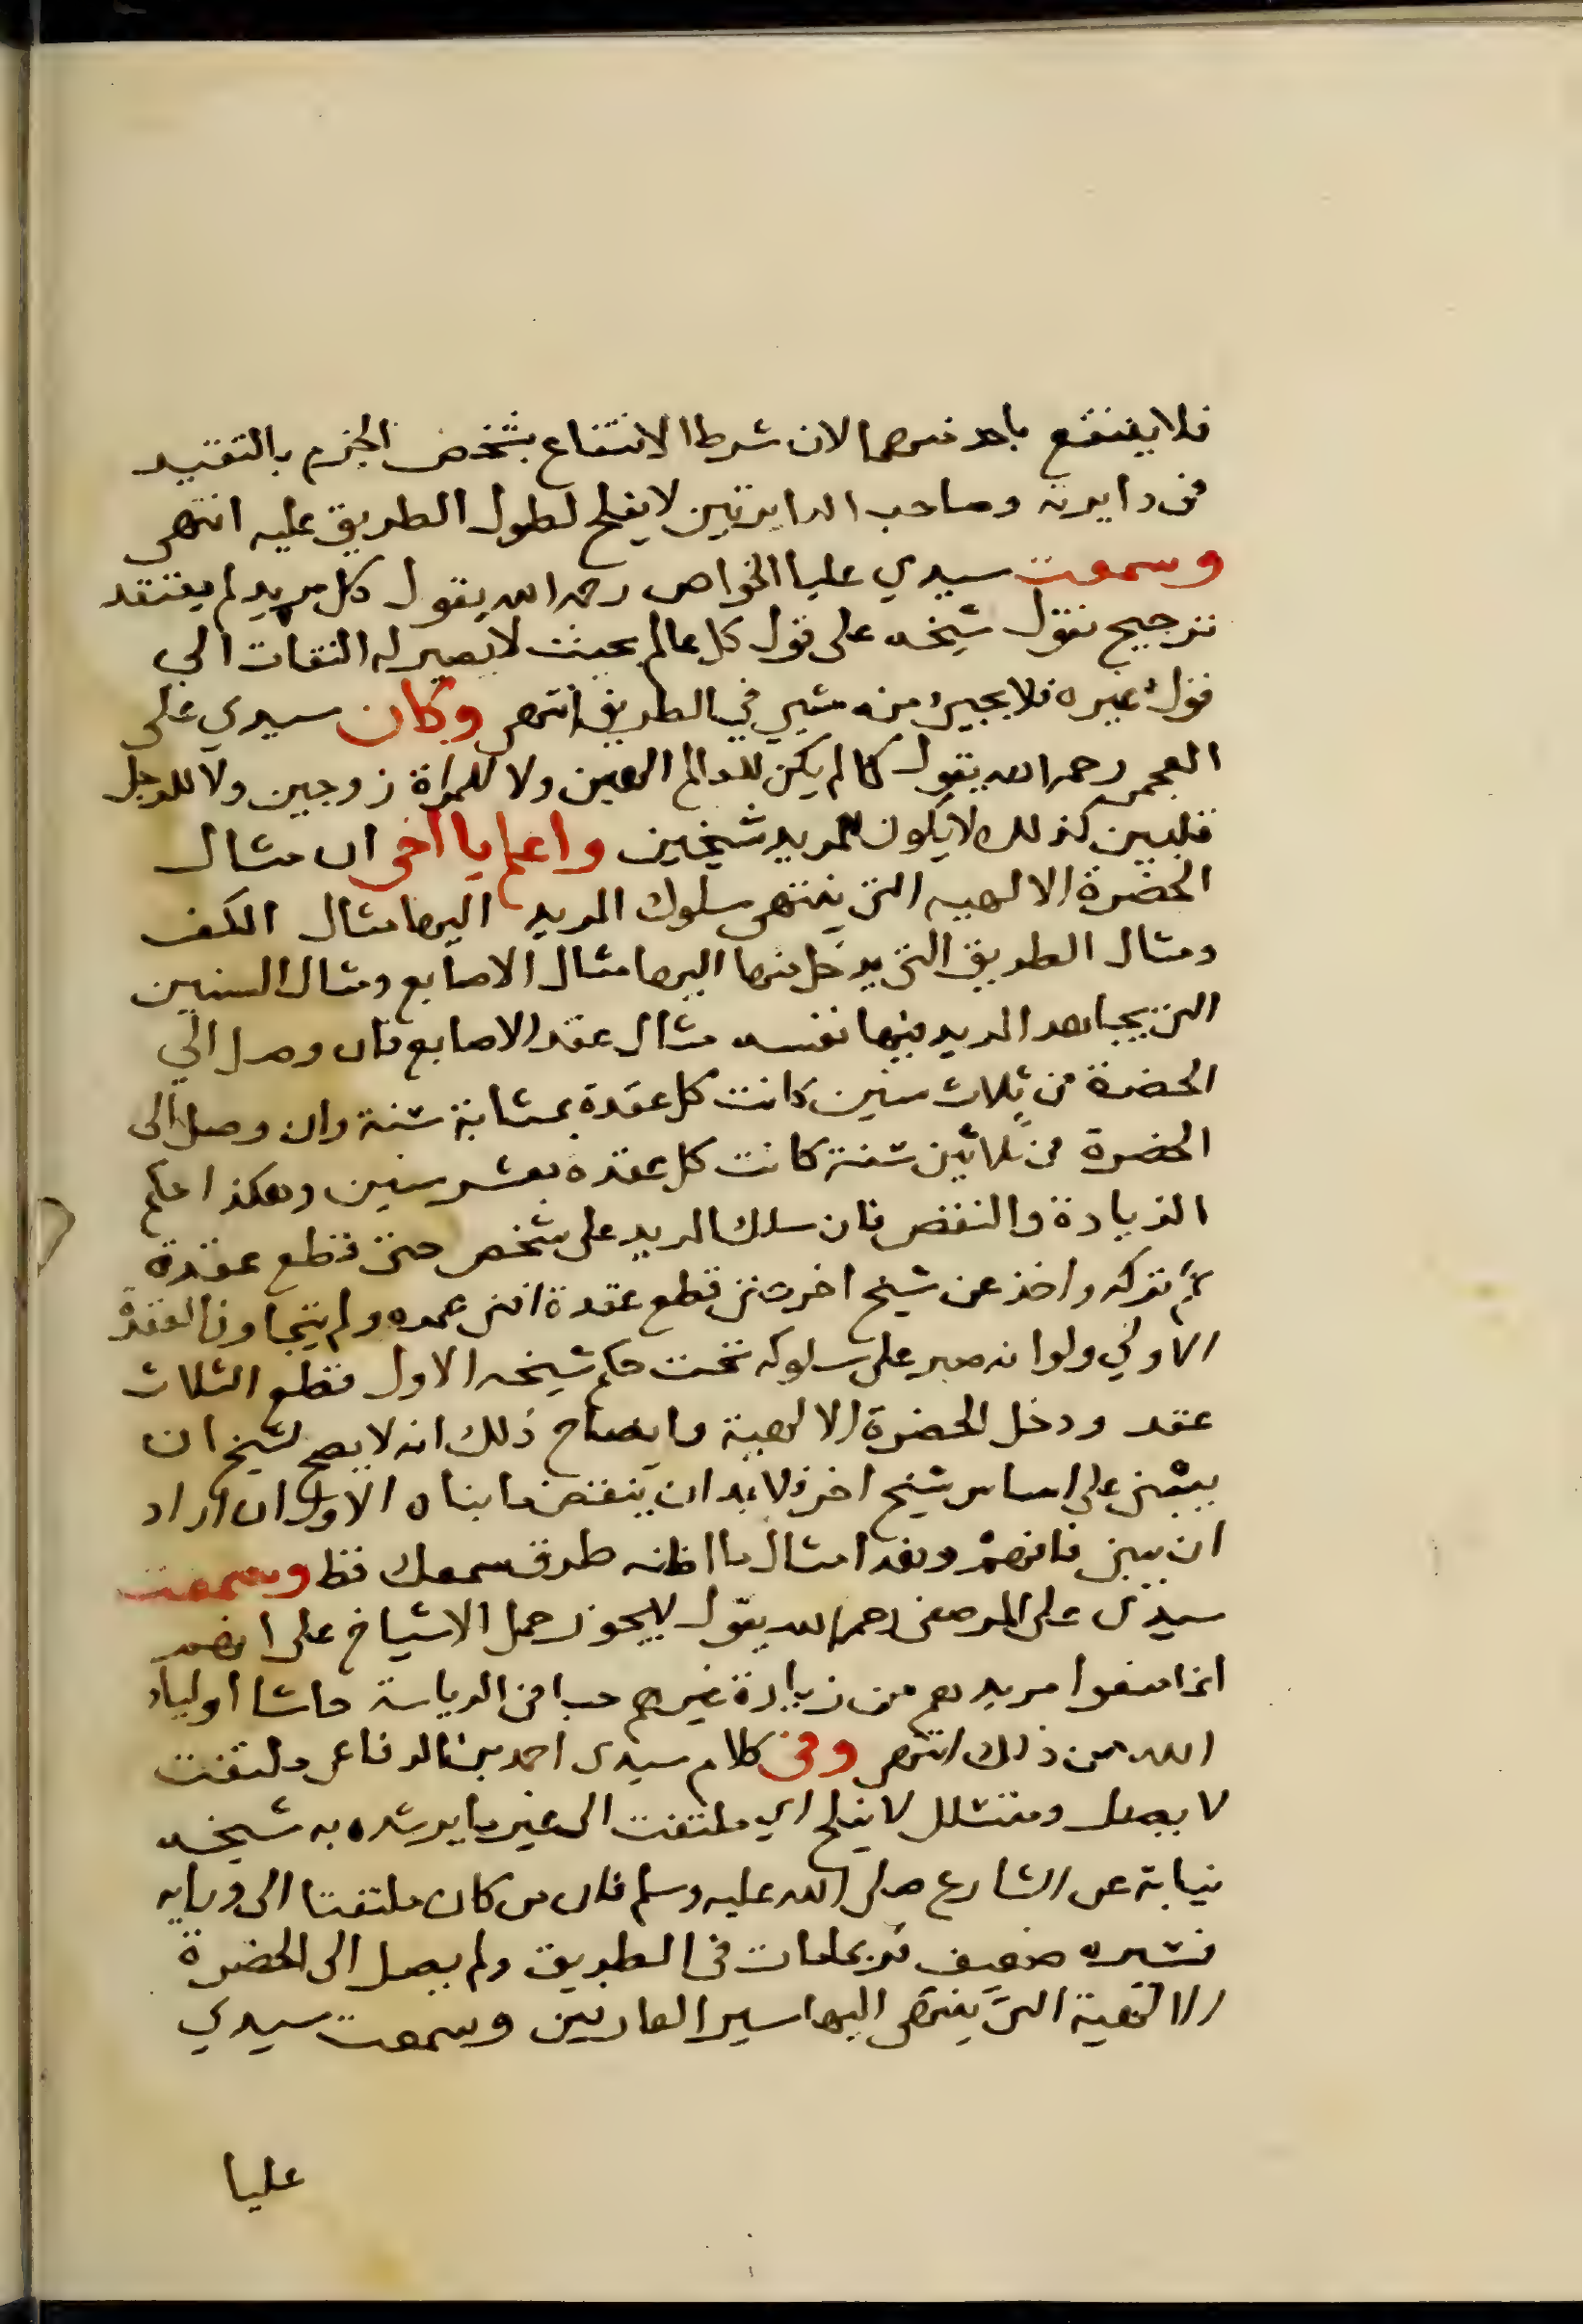 فلا ينتفع باحد منهما لان شرط الانتفاع بشخص الجزم بالتقييد
في دايرته وصاحب الدايرتين لا يفلح لطول الطريق عليه انتهى
وسمعت سيدي عليا الخواص رحمه الله يقول كل مريد لم يعتقد
ترجيح نقول شيخه على قول كل عالم بحيث لا يصير له التفات الي
قول غيره فلا يجيئ منه شيي في الطريق انتهى وكان سيدي على
العجمي رحمه الله يقول كما لم يكن للعالم الهين ولا للمراة زوجين ولا للرجل
قلبين كذلك لا يكون للمريد شيخين واعلم يا اخي ان مثال
الحضرة الالهيه التي ينتهى سلوك المريد اليها مثال الكف
ومثال الطريق التي يدخل منها اليها مثال الاصابع ومثال السنين
التي يجاهد المريد فيها نفسه مثال عقد الاصابع فان وصل الي
الحضرة في ثلاث سنين كانت كل عقدة بمثابة سنة وان وصل الى
الحضرة في ثلاثين سنة كانت كل عقده بعشر سنين وهكذا حكم
الزيادة والنقص فان سلك المريد على شخص حتى قطع عقدة
ثم تركه واخذ عن شيخ اخر حتى قطع عقدة افنى عمره ولم يتجاوز العقدة
الاولي ولو انه صبر على سلوكه تحت حكم شيخه الاول لقطع الثلاث
عقد ودخل الحضرة الالهية وايضاح ذلك انه لا يصح لشيخ ان
يبني على اساس شيخ اخر فلا بد ان ينقض ما بناه الاول ان اراد
ان يبني فافهم وهذا مثال ما اظنه طرق سمعك قط وسمعت
سيدى على المرصفى رحمه الله يقول لا يجوز حمل الاشياخ على انهم
انما منعوا مريدهم من زيارة غيرهم حبا في الرياسة حاشا اولياء
الله من ذلك انتهى وفي كلام سيدى احمد بن الرفاعى ملتفت
لا يصل ومتسلل لا يفلح اي ملتفت الى غير ما يرشده به شيخه
نيابة عن الشارع صلى الله عليه وسلم فان من كان ملتفتا الى ورايه
فسيره ضعيف فربما مات فى الطريق ولم يصل الى الحضرة
الالهية التى ينتهى اليها سير العارفين وسمعت سيدي
عليا